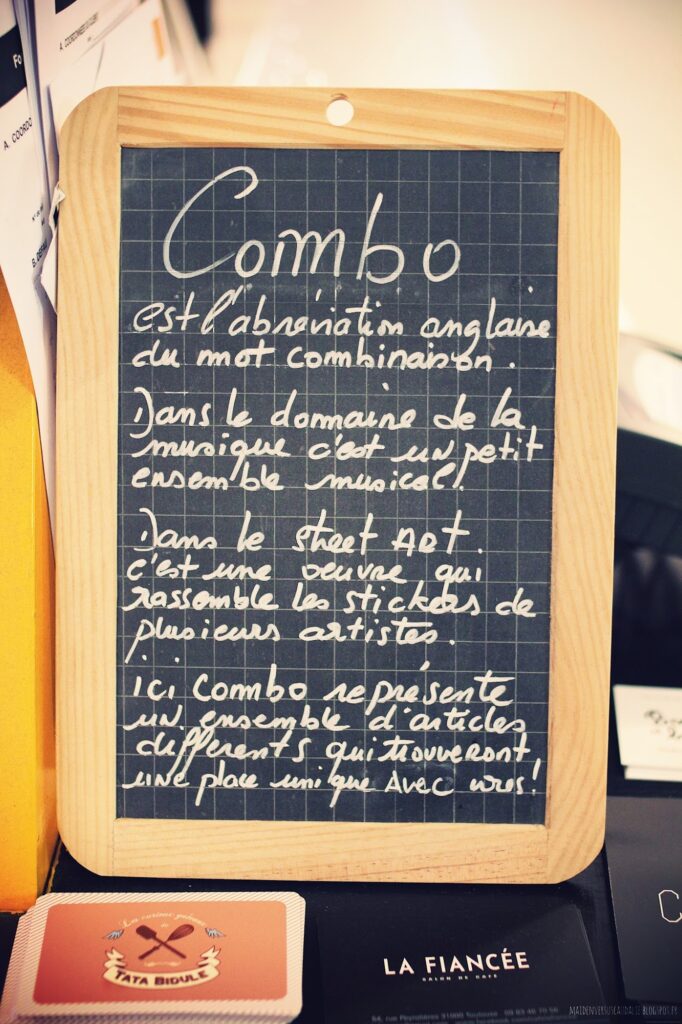 A. COORDO
Combo
est l'abréviation anglaise
du mot combinaison.
Dans le domaine de la
musique c'est un petit
ensemble musical.
Dans le street ART.
c'est une oeuvre qui
rassemble les stickers de
plusieurs artistes.
ici Combo représente
un ensemble d'articles
différents qui trouveront
une place unique Avec vous!
TATA BIDULE
LA FIANCÉE
SALON DE CAFÉ
54, rue Peyrolières 31000 Toulouse
MAIDENVERSUSCAUDALIE.BLOGSPOT.FR